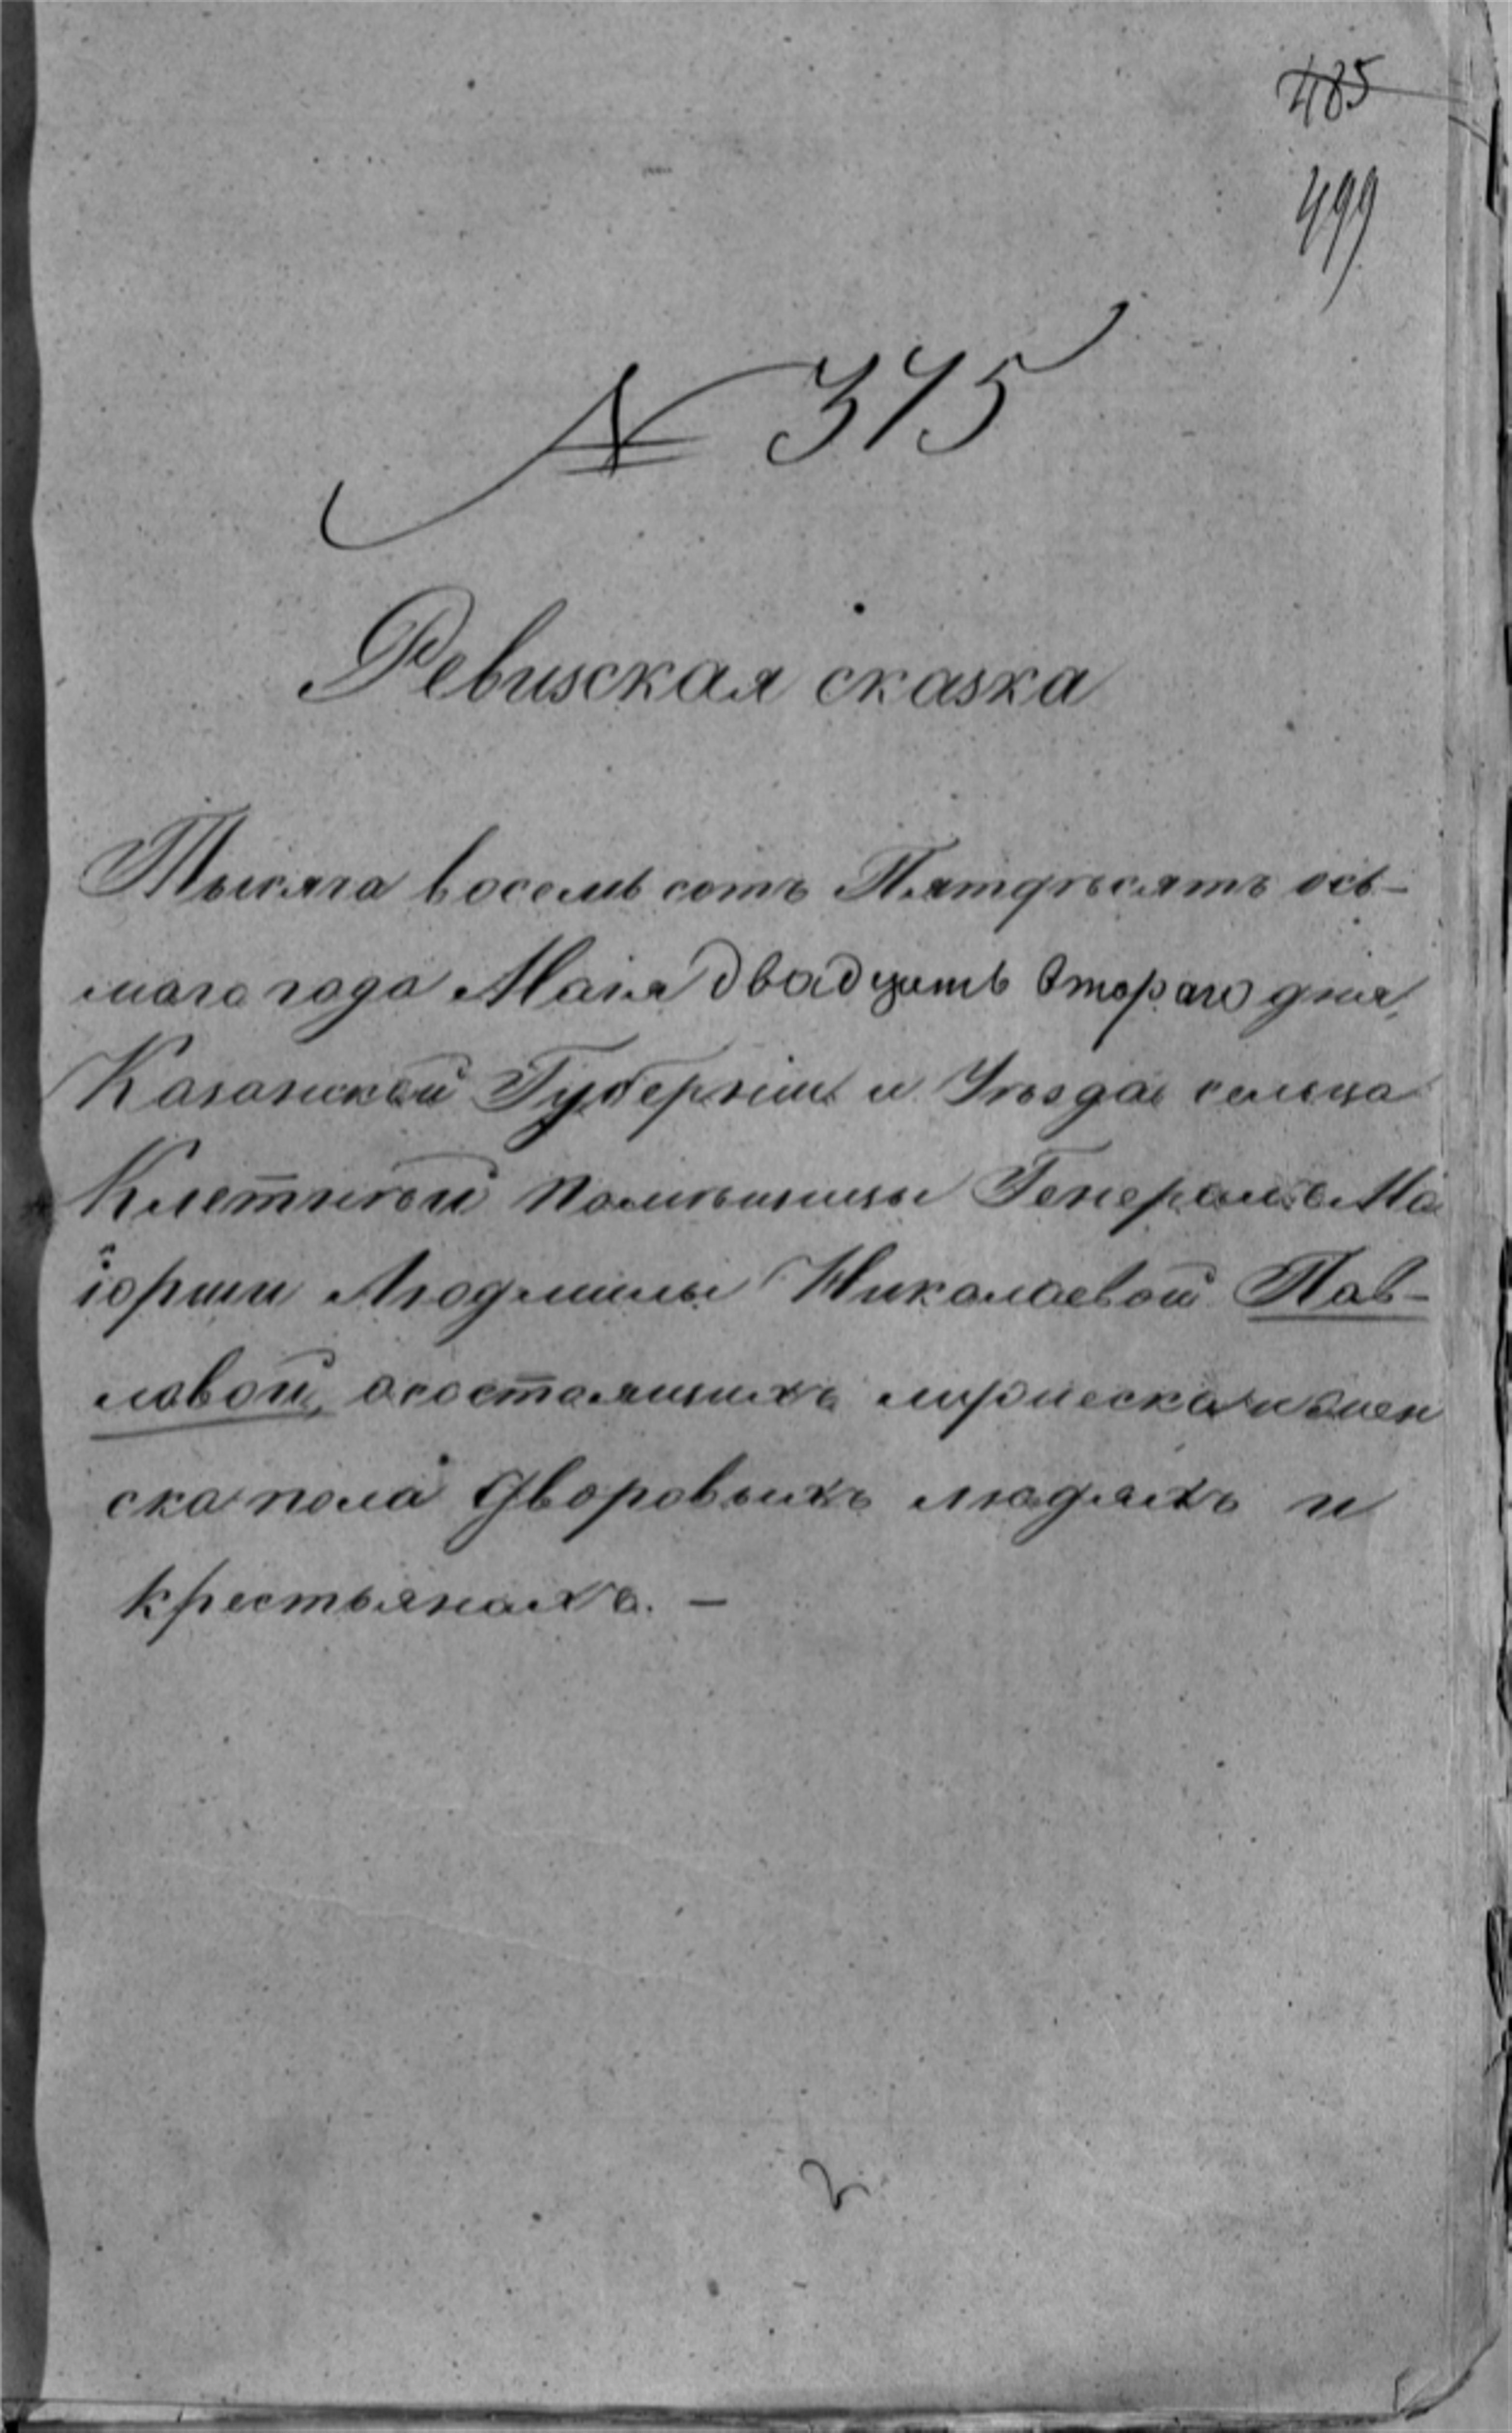 485
499
№ 375
Ревизская сказка
Тысяча восемь сотъ Пятдѣсятъ ось-
маго года Маія двадцать втораго дня,
Казанской Губерніи и Уѣзда сельца
Клетней помѣщицы Генералъ Ма
іорши Людмилы Николаевой Пав-
ловой, о состоящихъ мужеска и жен
ска пола дворовыхъ людяхъ и
крестьянахъ. –